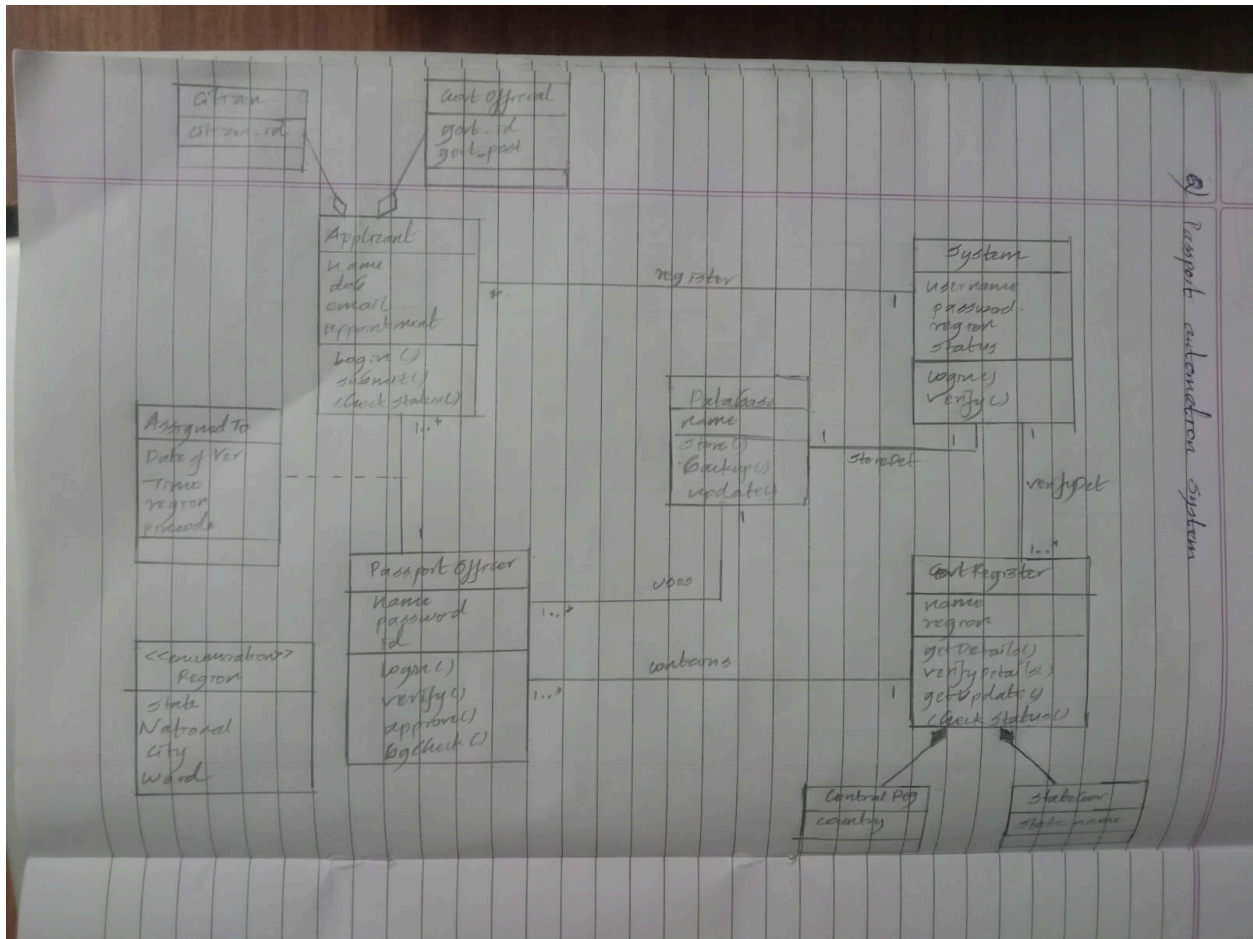 Q) Passport automation system
Citizen
citizen-id
Govt Official
govt-id
govt-post
Applicant
name
dob
email
appointment
Login()
submit()
check status()
*.
register
1
System
username
passwod.
region
status
login()
verify()
Database
name
store()
Backup()
update()
1
StoreDet
1
1
verifyDet
1..*
Assigned To
Date of Ver
Time
region
pincode
1..*
1
Passport Officer
name
password
id
login()
verify()
approve()
bgcheck()
1
uses
1..*
contains
1..*
1
Govt Register
name
region
getDetails()
verifyDetails()
getUpdate()
check status()
<<enumeration>>
Region
state
National
city
ward
Central Reg
country
State Gov
state-name